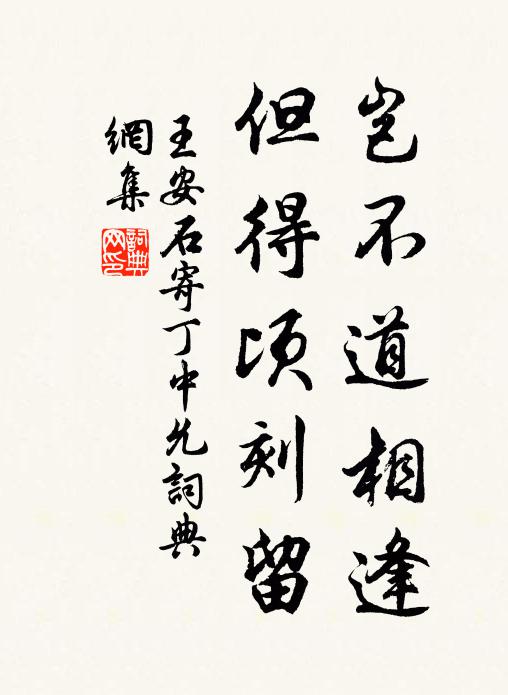 豈不道相逢
但得頃刻留
王安石寄丁中允詞典
網集
詞典
网印